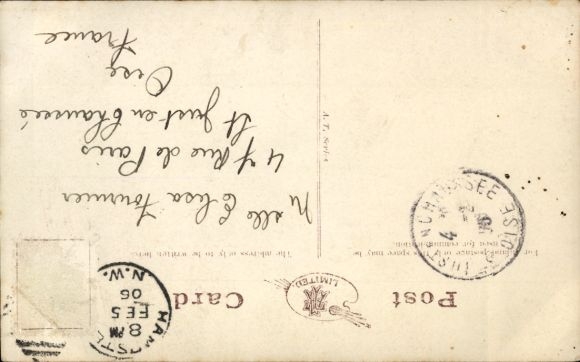 Post Card
LIMITED.
For inland postage only this space may be
used for communication.
The address only to be written here.
HAMPSTEAD
N.W.
8 PM
FE 5
06
ST JUST-EN-CHAUSSEE OISE
Melle Elisa Fournier
47 Rue de Paris
St Just en Chaussée
Oise
France